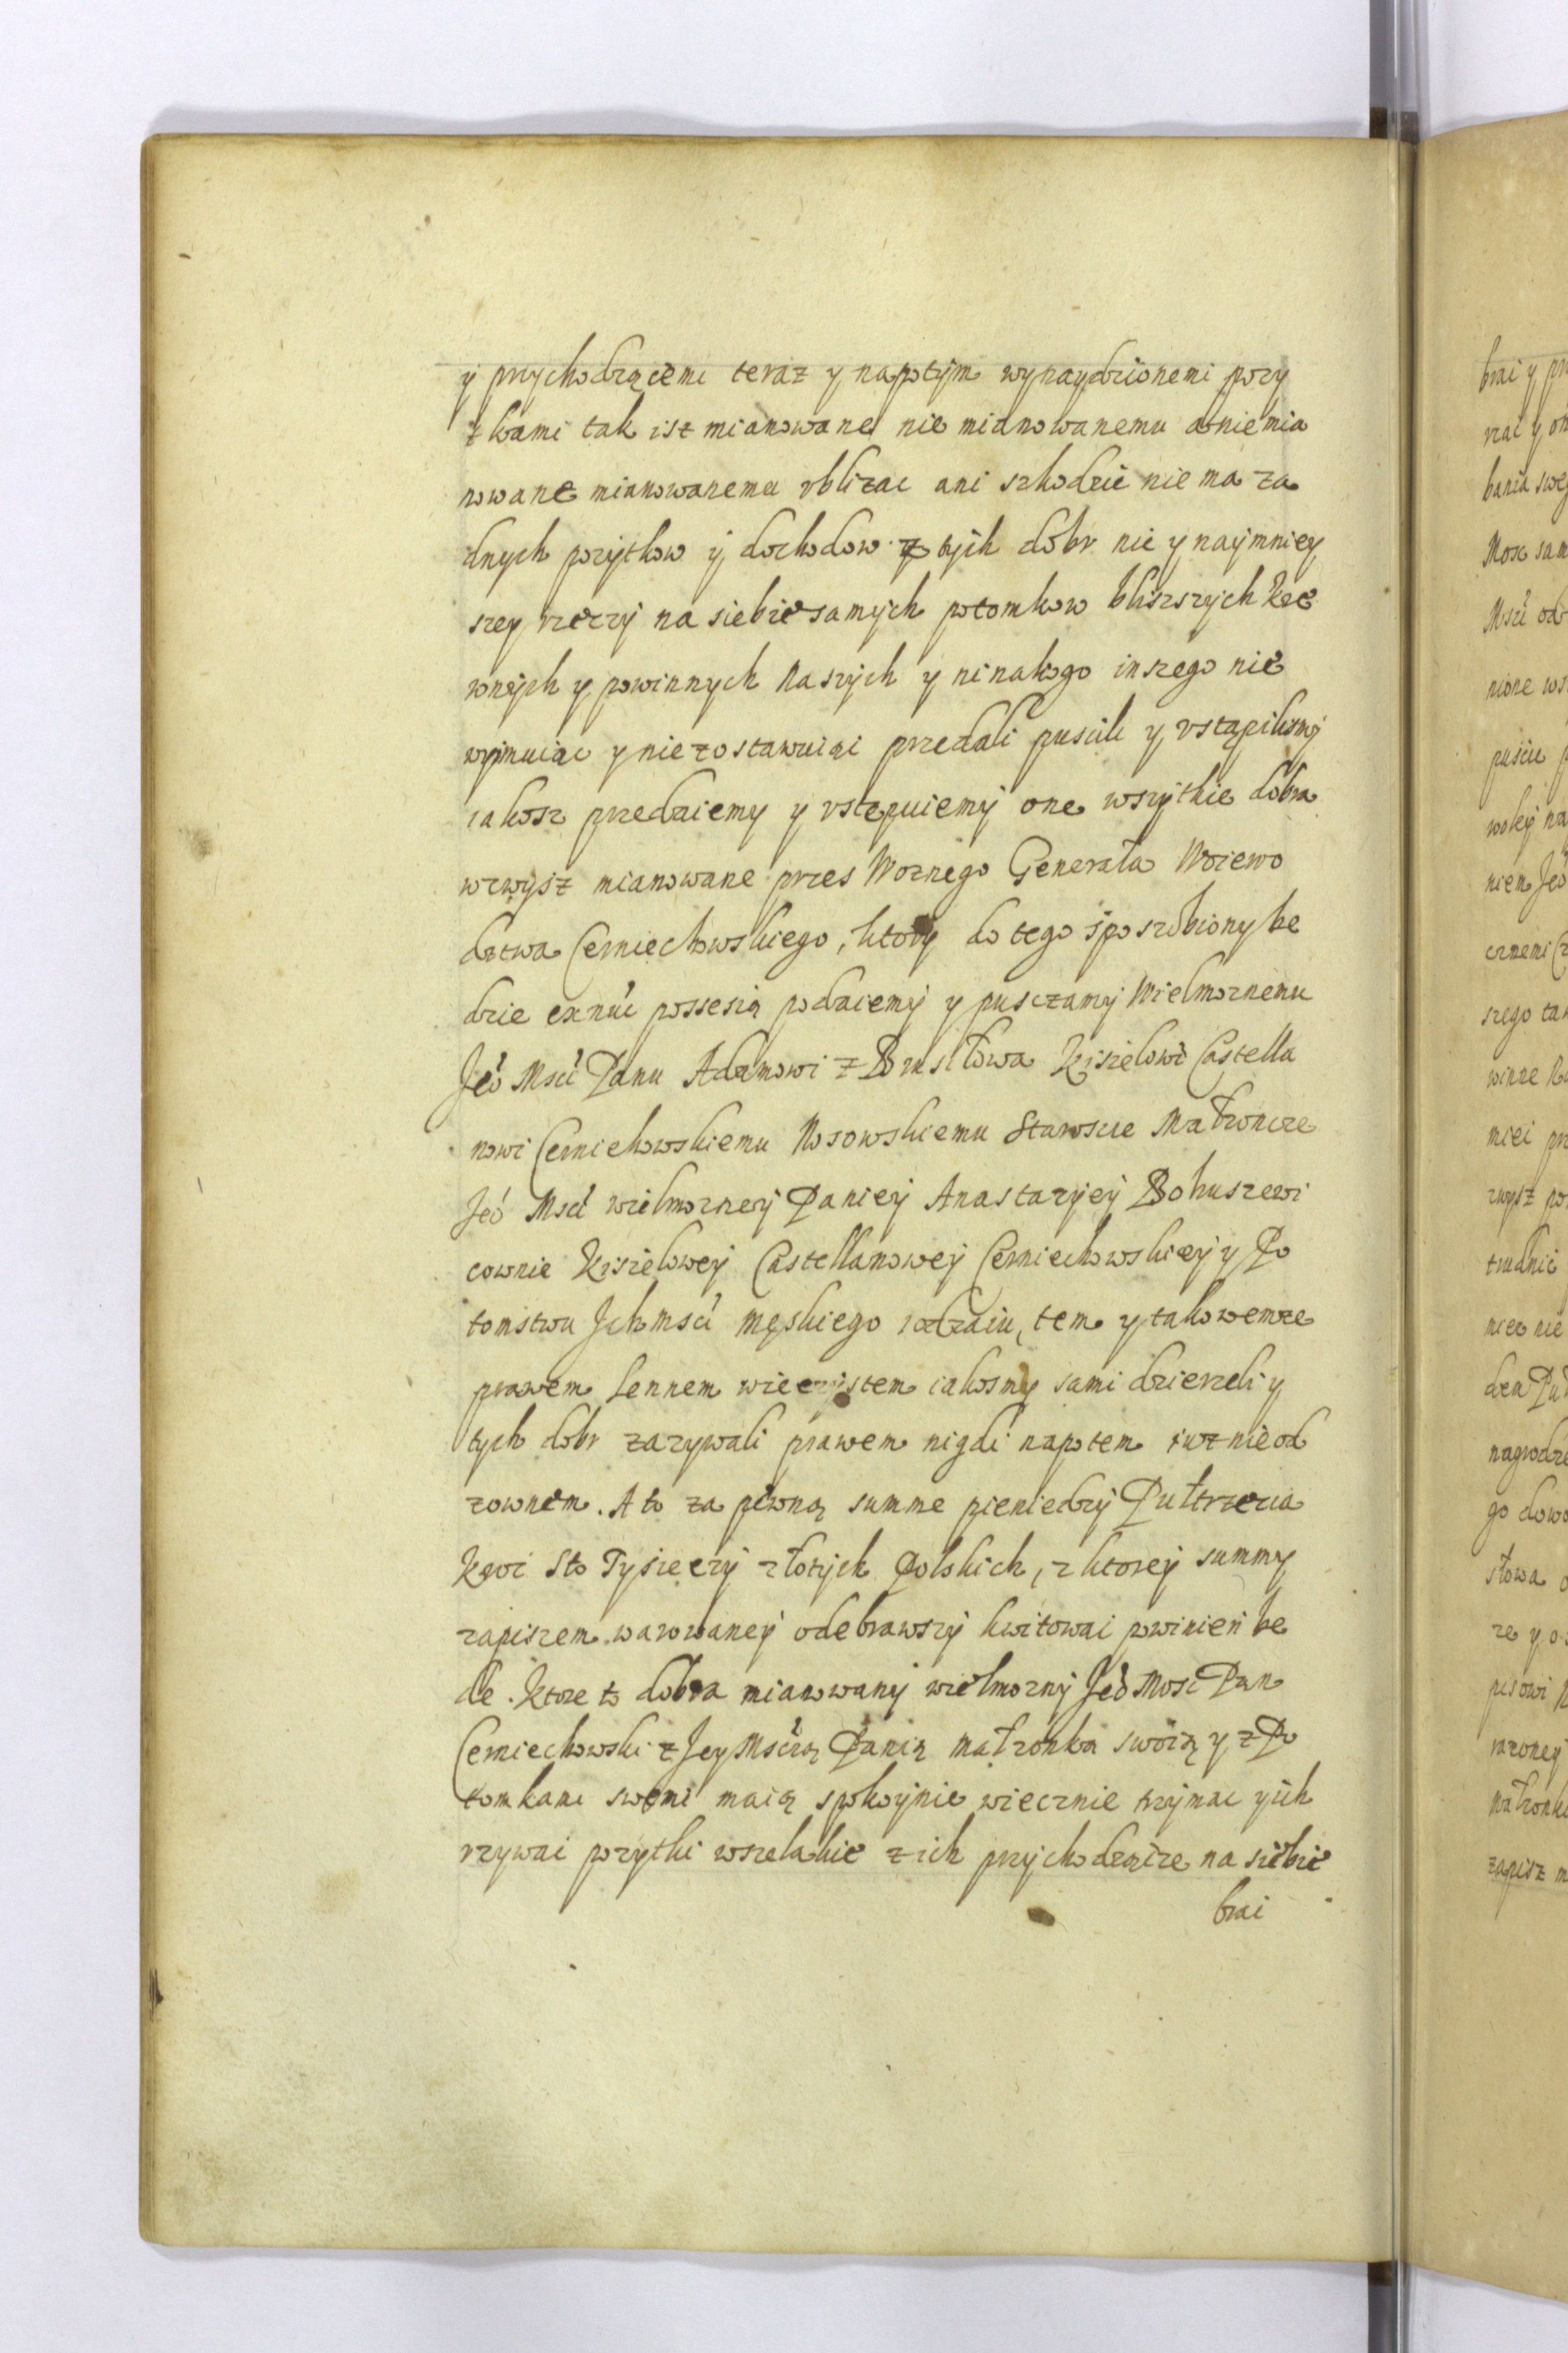 y przychodzącemi teraz y napotym wynaydzionemi pozy
tkami tak isz mianowane nie mianowanemu a niemia
nowane mianowanemu vbliżac ani szkodzic nie ma za
dnych pożytkow y dochodow z tych dobr nie y naymniey
szey rzeczy na siebie samych potomkow bliszszych kre
wnych y powinnych naszych y ninakogo inszego nie
wyimuiąc y niezostawuiąc przedali puscili y vstąpilismy
iakosz przedaiemy y vstępuiemy one wszytkie dobra
wzwysz mianowane przes Woznego Generała Woiewo
dztwa Czerniechowskiego, ktory do tego sposobiony be
dzie ex nuc possesią podaiemy y pusczamy Wielmoznemu
Jeo Msci Panu Adamowi z Brusiłowa Kisielowi Castella
nowi Czerniehowskiemu Nosowskiemu Staroscie Małzonce
Jeo Msci wielmozney Paniey Anastazyey Bohuszewi
cownie Kisielowey Castellanowey Czerniechowskiey y Po
tomstwu Jchmsci męskiego rodzaiu, tem y takowemze
prawem lennem wieczystem iakosmy sami dzierzeli y
tych dobr zazywali prawem nigdi napotem iusz nieod
zownem. A to za pewną summe pieniedzy Pułtrzecia
Kroc Sto Tysięczy złotych Polskich, z ktorey summy
zapiszem warowaney odebrawszy kwitowac powinien be
de. Ktore to dobra mianowany wielmozny Jeo Mosc Pan
Czerniechowski z Jey Mscią Panią małzonką swoią y z Po
tomkami swemi maią spokoynie wiecznie trzymac y ich
vzywac pozytki wszelakie z ich przychodzące na siebie
brac